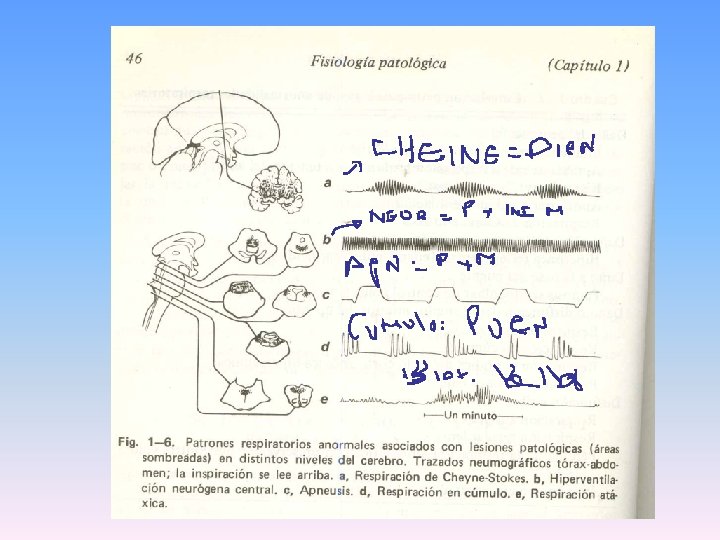 46 Fisiología patológica (Capítulo 1)
CHEINE = DIEN
a
NEUR = P + INE M
b
APN = P + M
c
CUMULO: PUEN
d
BIOT.
e
Un minuto
Fig. 1—6. Patrones respiratorios anormales asociados con lesiones patológicas (áreas
sombreadas) en distintos niveles del cerebro. Trazados neumográficos tórax-abdo-
men; la inspiración se lee arriba. a, Respiración de Cheyne-Stokes. b, Hiperventila-
ción neurógena central. c, Apneusis. d, Respiración en cúmulo. e, Respiración atá-
xica.